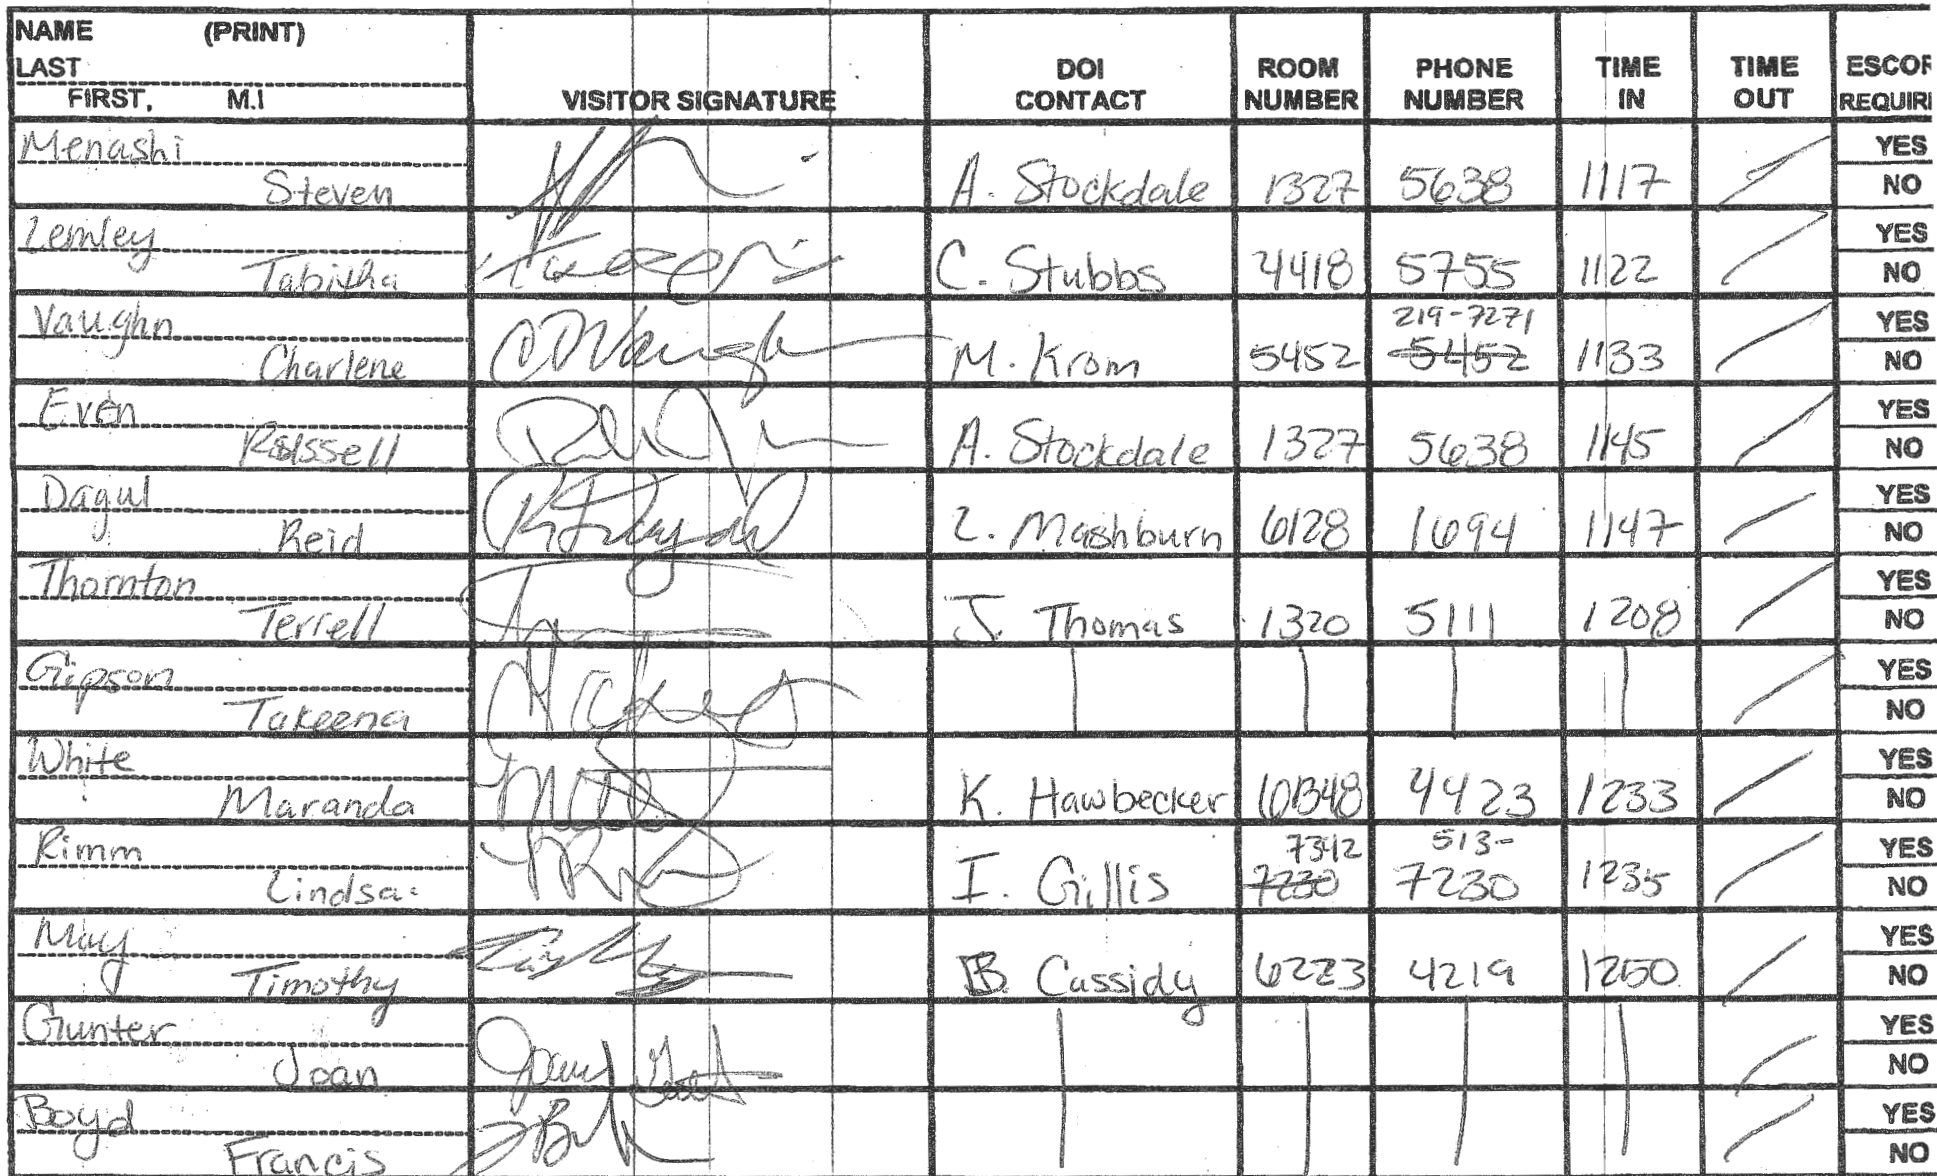 NAME (PRINT)
LAST
FIRST, M.I
VISITOR SIGNATURE
DOI CONTACT
ROOM NUMBER
PHONE NUMBER
TIME IN
TIME OUT
ESCOR REQUIRI
Menashi
Steven A. Stockdale 1327 5638 1117
YES
NO
Lemley
Tabitha C. Stubbs 4418 5755 1122
YES
NO
Vaughn 219-7271
Charlene M. Krom 5452 5452 1133
YES
NO
Even
Russell A. Stockdale 1327 5638 1145
YES
NO
Dayul
Reid L. Mashburn 6128 1694 1147
YES
NO
Thornton
Terrell J. Thomas 1320 5111 1208
YES
NO
Gipson
Takeena
YES
NO
White
Maranda K. Hawbecker 6348 4423 1233
YES
NO
Rimm 7342 513-
Lindsa I. Gillis 7230 7230 1235
YES
NO
May
Timothy B. Cassidy 6223 4219 1250
YES
NO
Gunter
Joan
YES
NO
Boyd
Francis
YES
NO